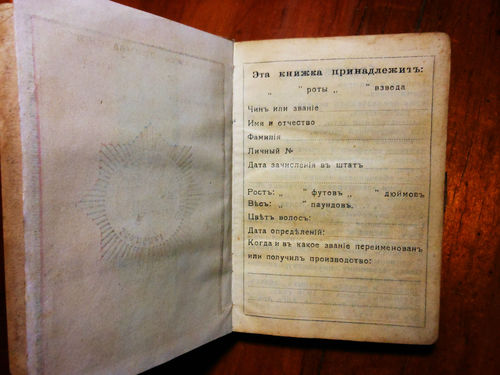 Эта книжка принадлежитъ:
„ ” роты „ ” взвода
Чинъ или званіе
Имя и отчество
Фамилія
Личный №
Дата зачисленія въ штатъ
Ростъ: „ ” футовъ „ ” дюймовъ
Вѣсъ: „ ” паундовъ.
Цвѣтъ волосъ:
Дата опредѣленій:
Когда и въ какое званіе переименован
или получилъ производство: